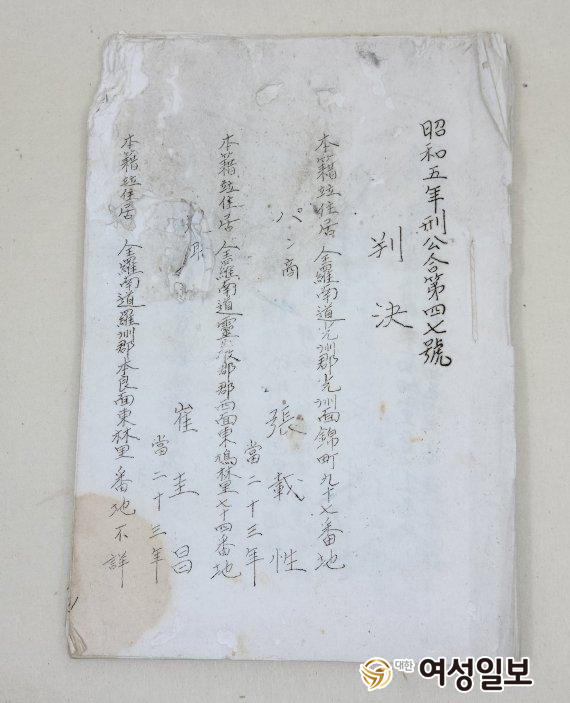 昭和五年刑公合第四七號
判決
本籍竝住居 全羅南道光洲郡光洲面錦町九十七番地
パン商
張載性
當二十三年
本籍竝住居 全羅南道靈巖郡郡西面東鳩林里七十四番地
崔圭昌
當二十三年
本籍竝住居 全羅南道羅洲郡本良面東林里番地不詳
대한 여성일보